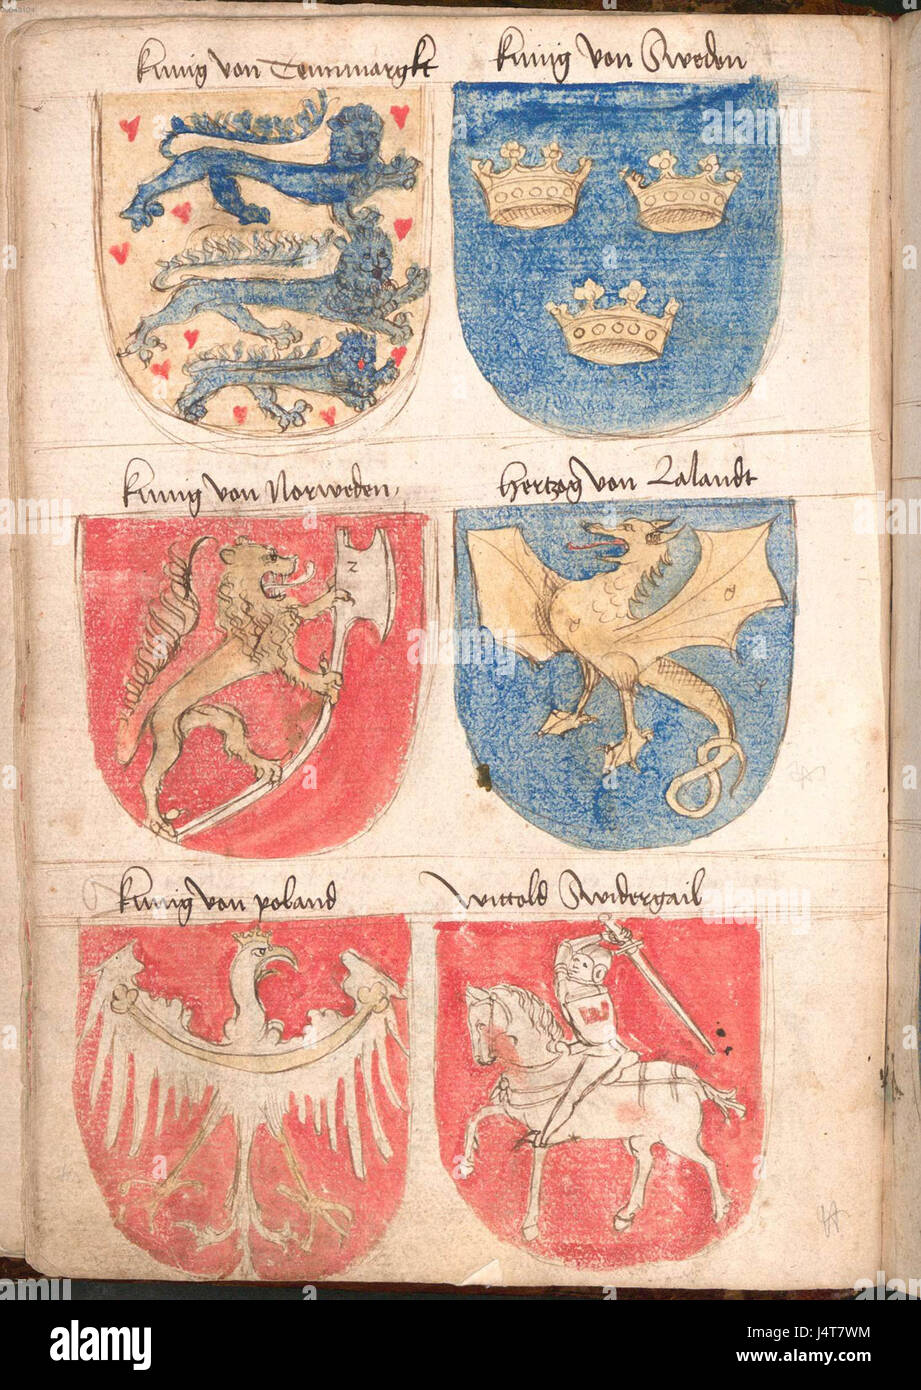 kunig von Tennmargkt
kunig von Sweden
kunig von Norweden
hertzog von Lalandt
kunig von poland
wittold Swidergail
alamy stock photo
J4T7WM